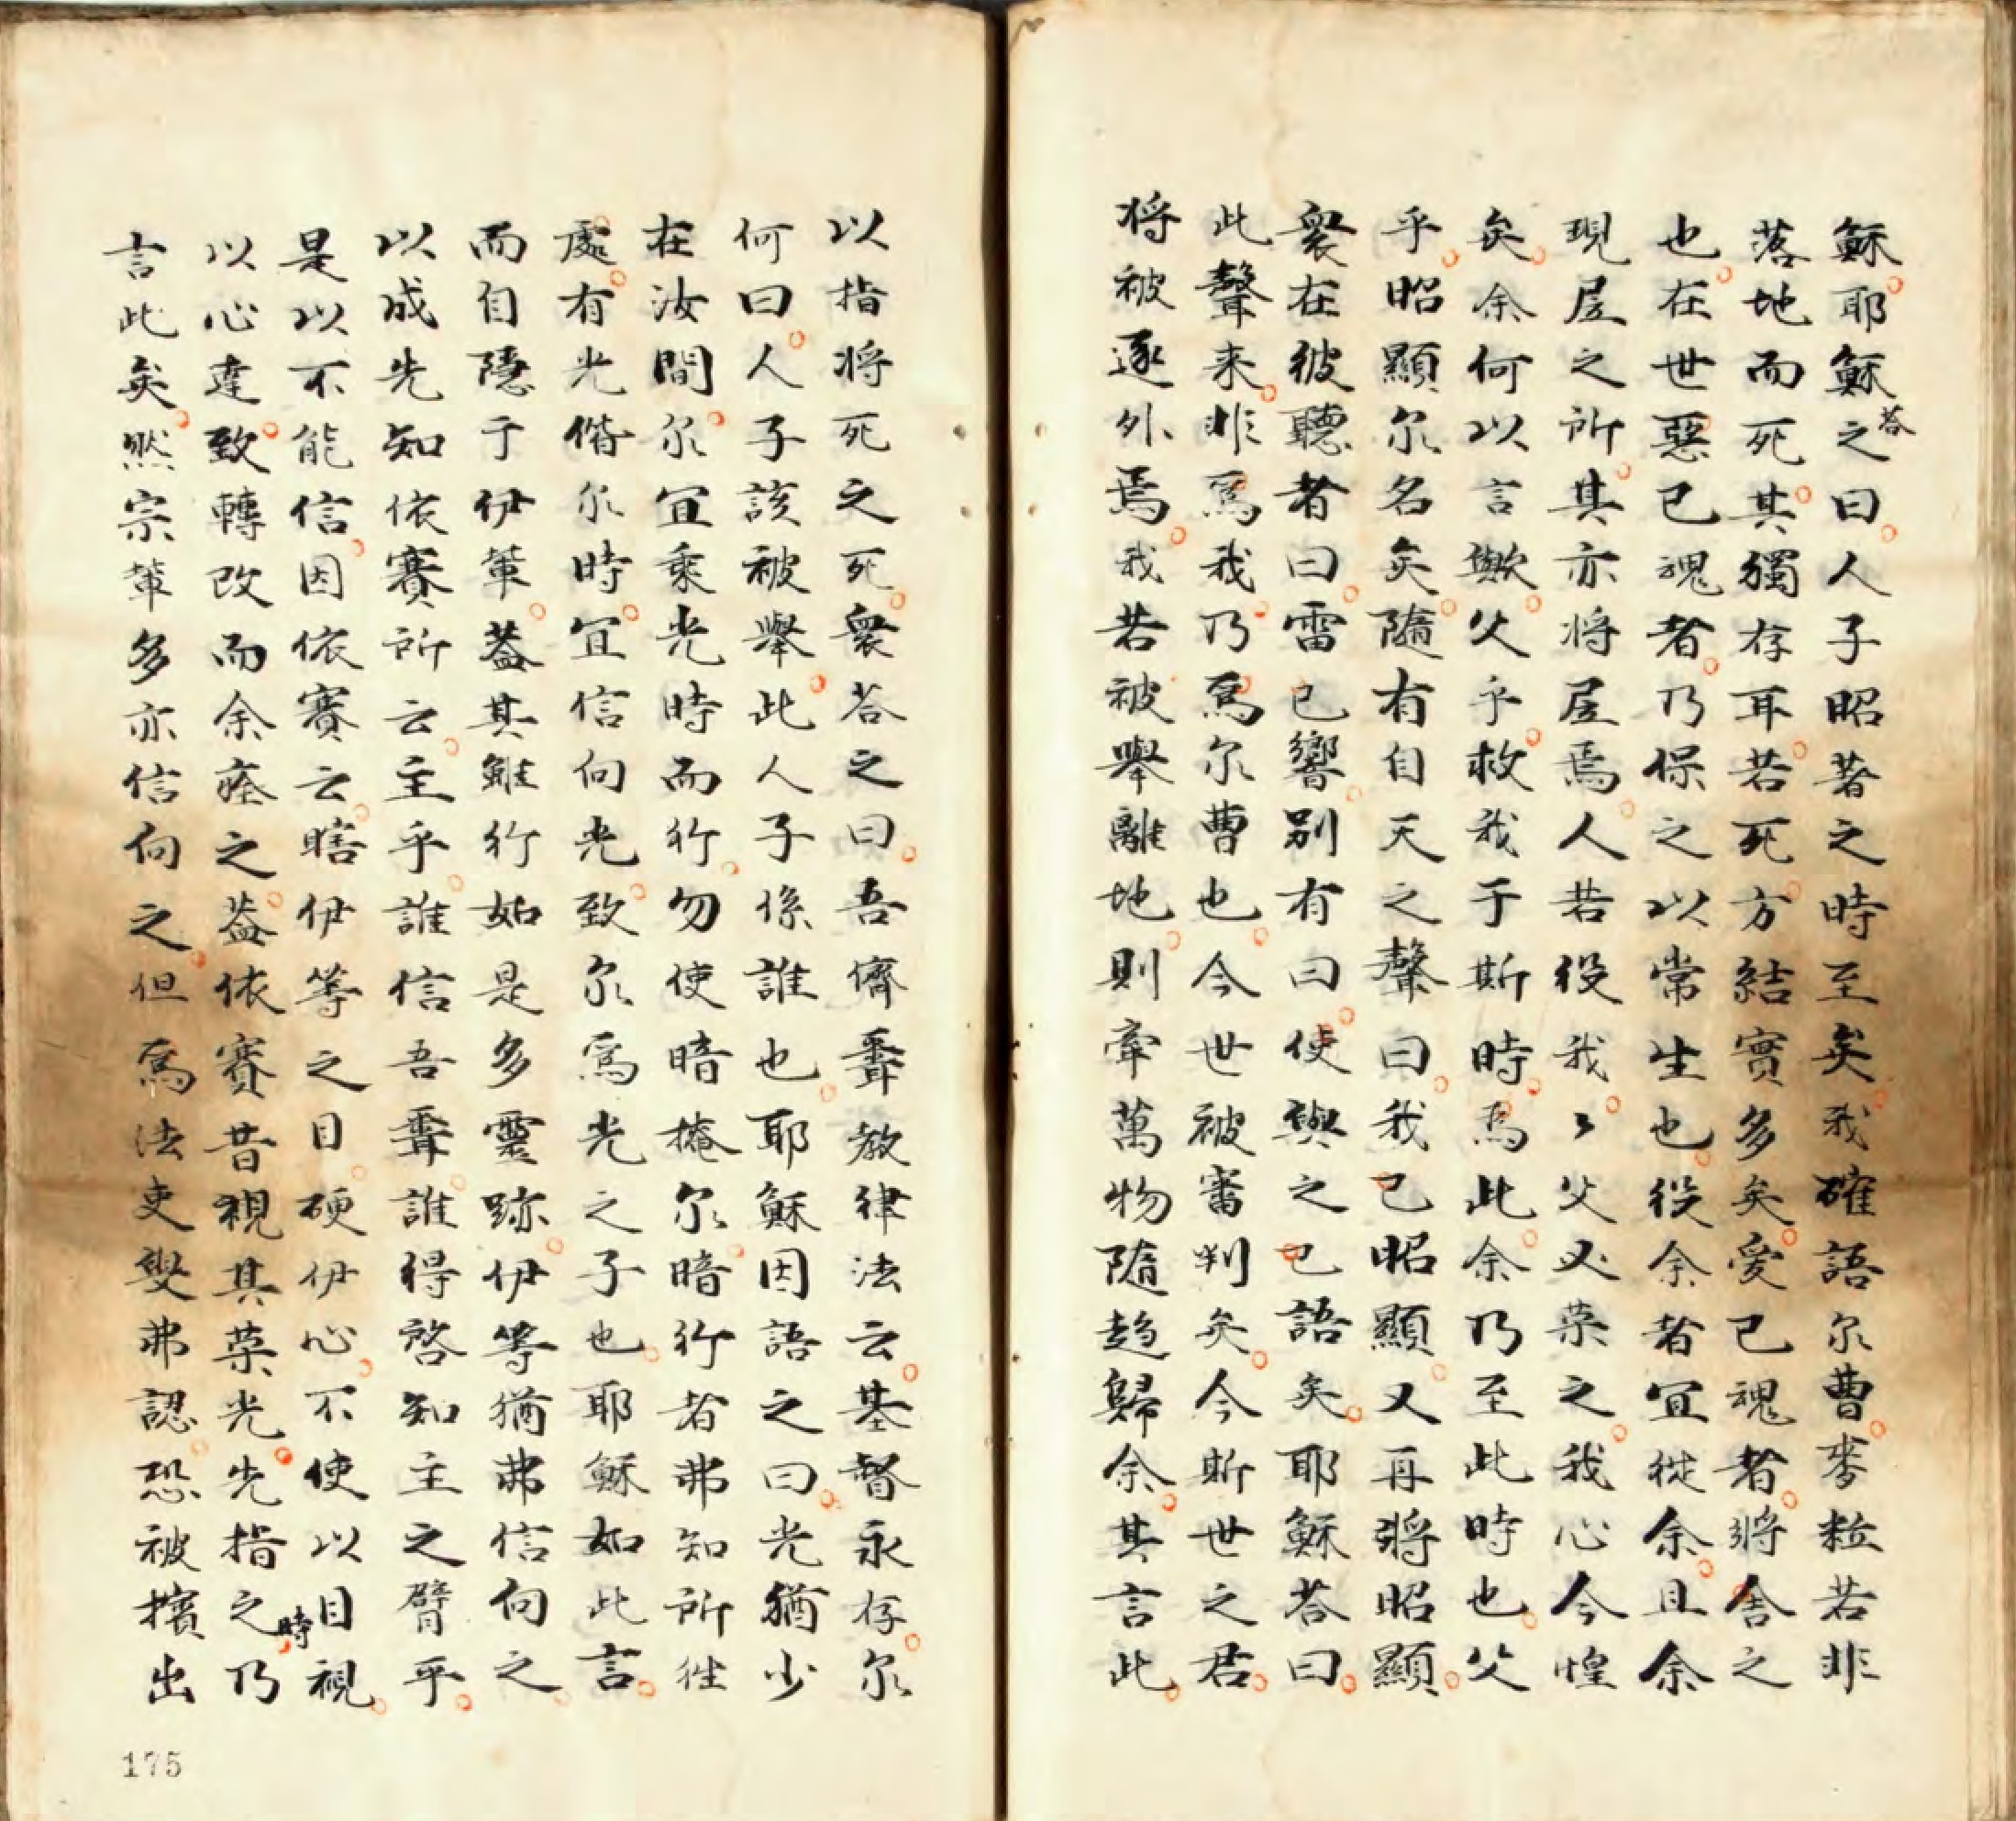 穌耶穌答之曰人子昭著之時至矣我確語尔曹麥粒若非
落地而死其獨存耳若死方結實多矣愛己魂者將舍之
也在世惡己魂者乃保之以常生也役余者宜從余且余
現居之所其亦將居焉人若役我〻父必荣之我心今惶
矣余何以言歟父乎救我于斯時焉此余乃至此時也父
乎昭顯尔名矣隨有自天之聲曰我已昭顯又再將昭顯
衆在彼聽者曰雷已響別有曰使與之已語矣耶穌答曰
此聲来非爲我乃爲尔曹也今世被審判矣今斯世之君
将被逐外焉我若被舉離地則牽萬物隨趋歸余其言此
以指将死之死衆答之曰吾儕聽教律法云基督永存尔
何曰人子該被舉此人子係誰也耶穌因語之曰光猶少
在汝間尔宜乘光時而行勿使暗掩尔暗行者弗知所徃
處有光偕尔時宜信向光致尔爲光之子也耶穌如此言
而自隱于伊輩葢其雖行如是多靈跡伊等猶弗信向之
以成先知依賽所云主乎誰信吾聽誰得啓知主之臂乎
是以不能信因依賽云瞎伊等之目硬伊心不使以目視
以心達致轉改而余痊之葢依賽昔視其荣光先指之時乃
言此矣然宗輩多亦信向之但爲法吏叟弗認恐被擯出
175